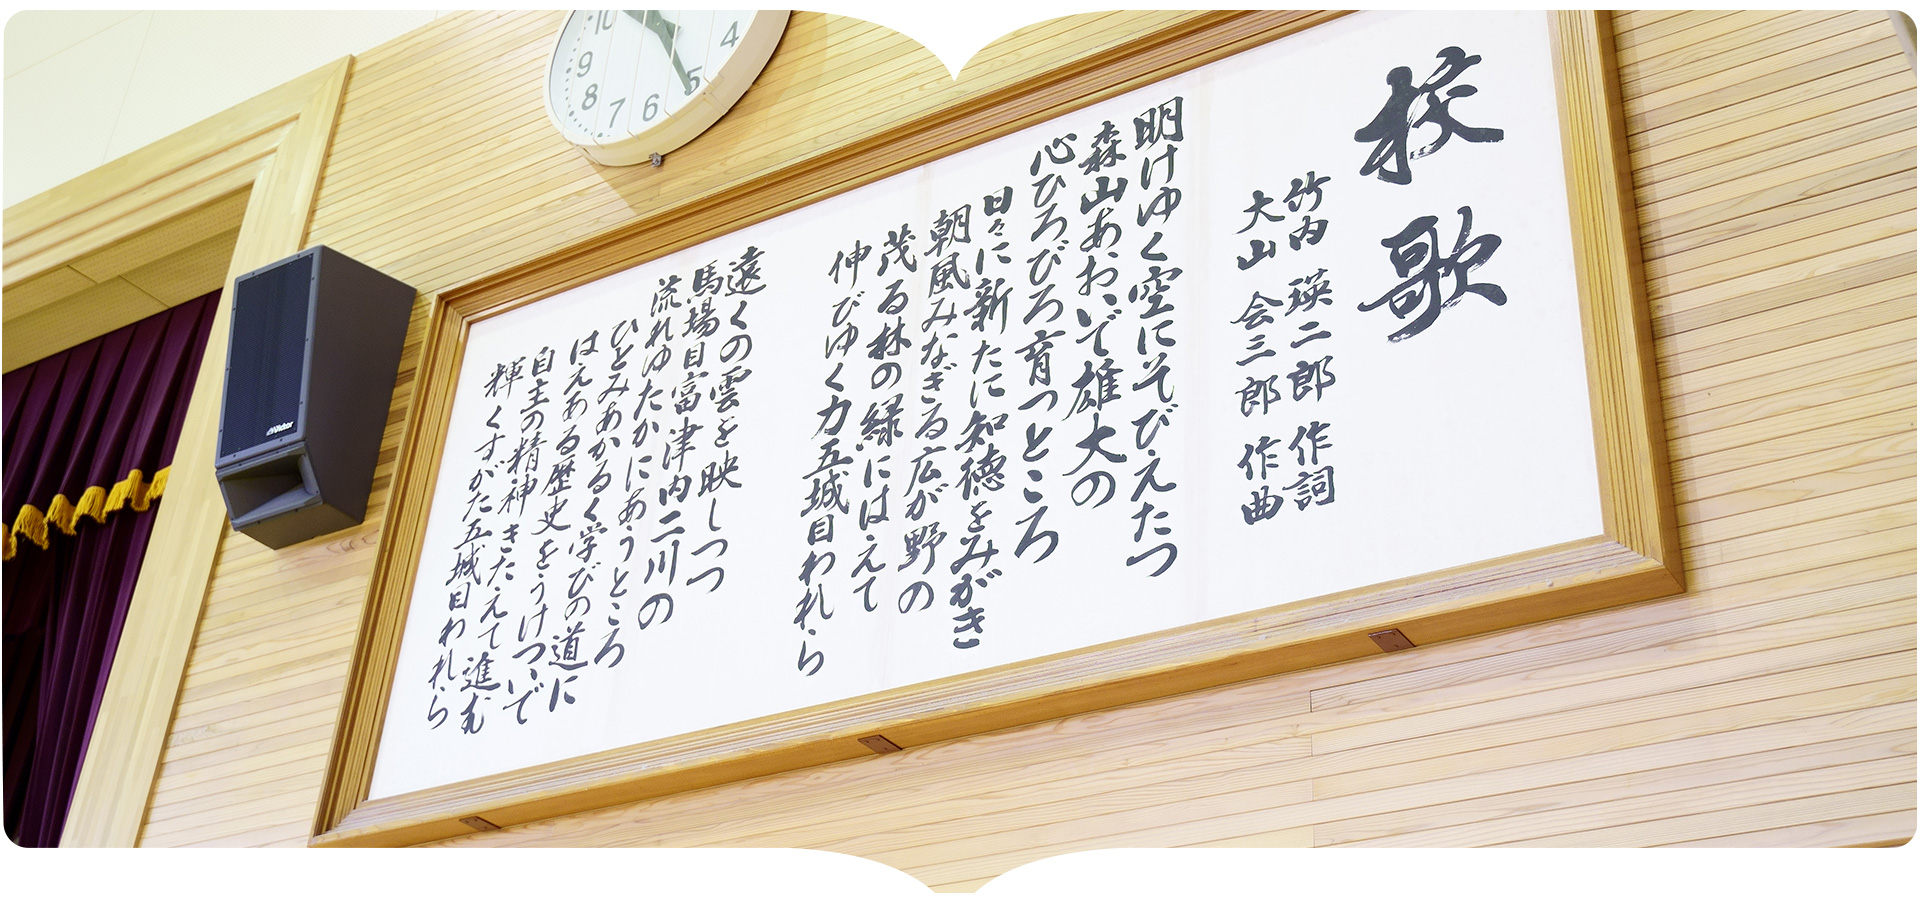 校歌
竹内 瑛二郎 作詞
大山 会三郎 作曲
明けゆく空にそびえたつ
森山あおいで雄大の
心ひろびろ育つところ
日々に新たに知徳をみがき
朝風みなぎる広が野の
茂る林の緑にはえて
伸びゆく力五城目われら
遠くの雲を映しつつ
馬場目富津内二川の
流れゆたかにあうところ
ひとみあかるく学びの道に
はえある歴史をうけついで
自主の精神きたえて進む
輝くすがた五城目われら
10
9
8
7
6
5
4
Victor